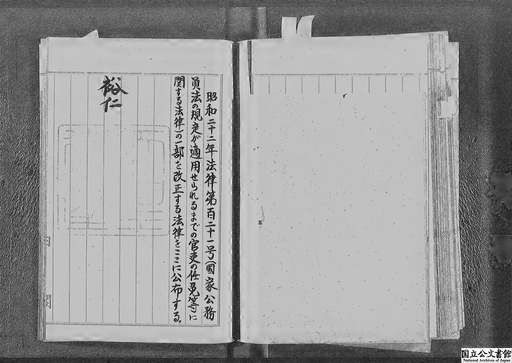 昭和二十二年法律第百二十一号(国家公務
員法の規定が適用せられるまでの官吏の任免等に
関する法律)の一部を改正する法律をここに公布する。
裕仁
国立公文書館
National Archives of Japan